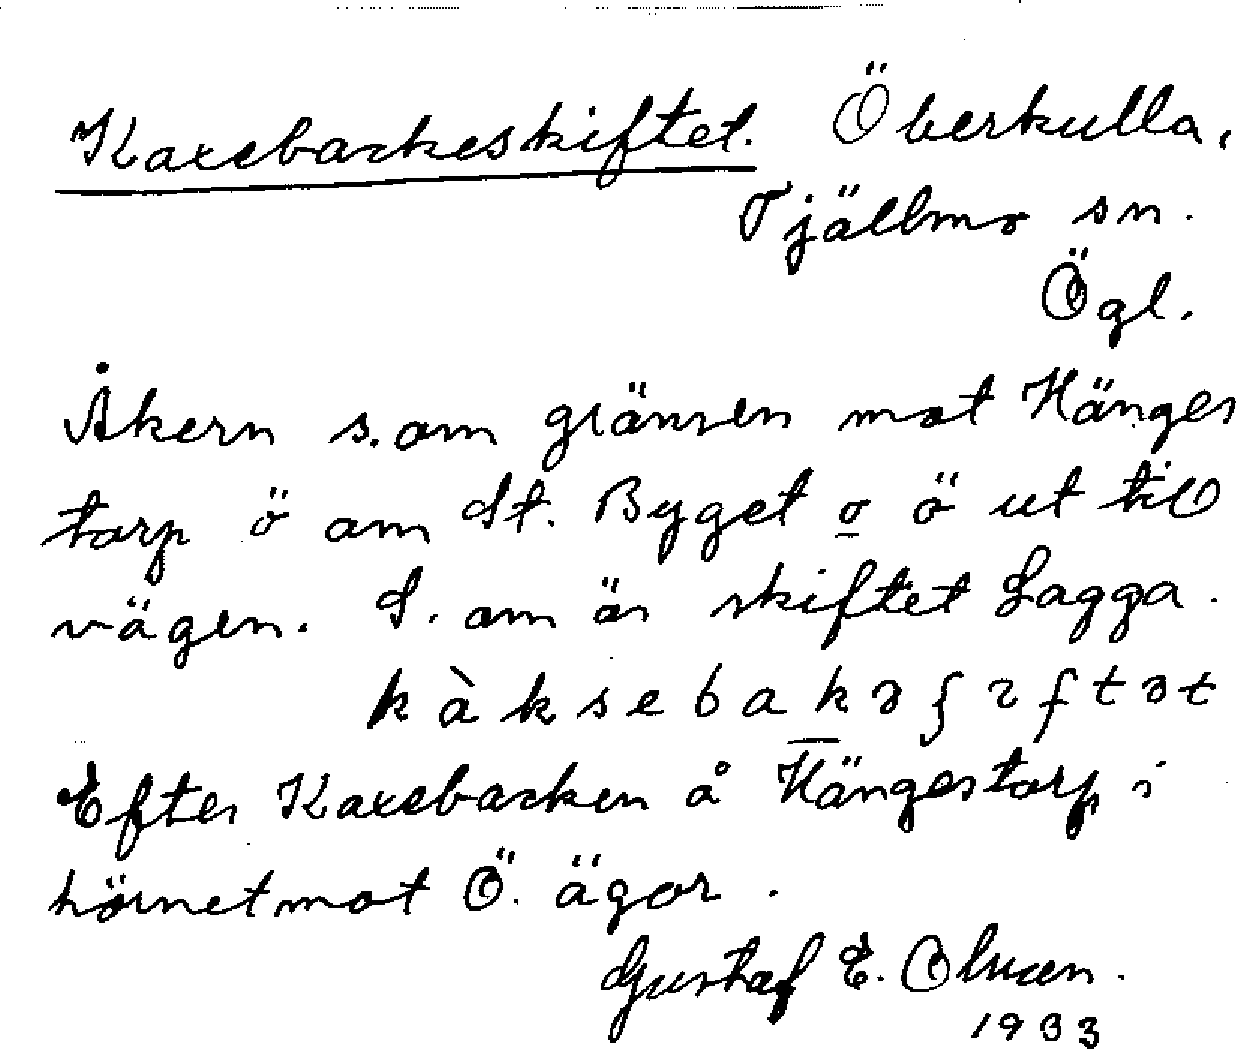 Kaxebackeskiftet. Överkulla,
Tjällmo sn.
Ögl.
Åkern s. om gränsen mot Hänges
torp ö om St. Byget o ö ut till
vägen. S. om är skiftet Lagga.
kàksebakəʃıftət
Efter Kaxebacken å Hängestorp i
hörnet mot Ö. ägor.
Gustaf E. Olsson.
1933